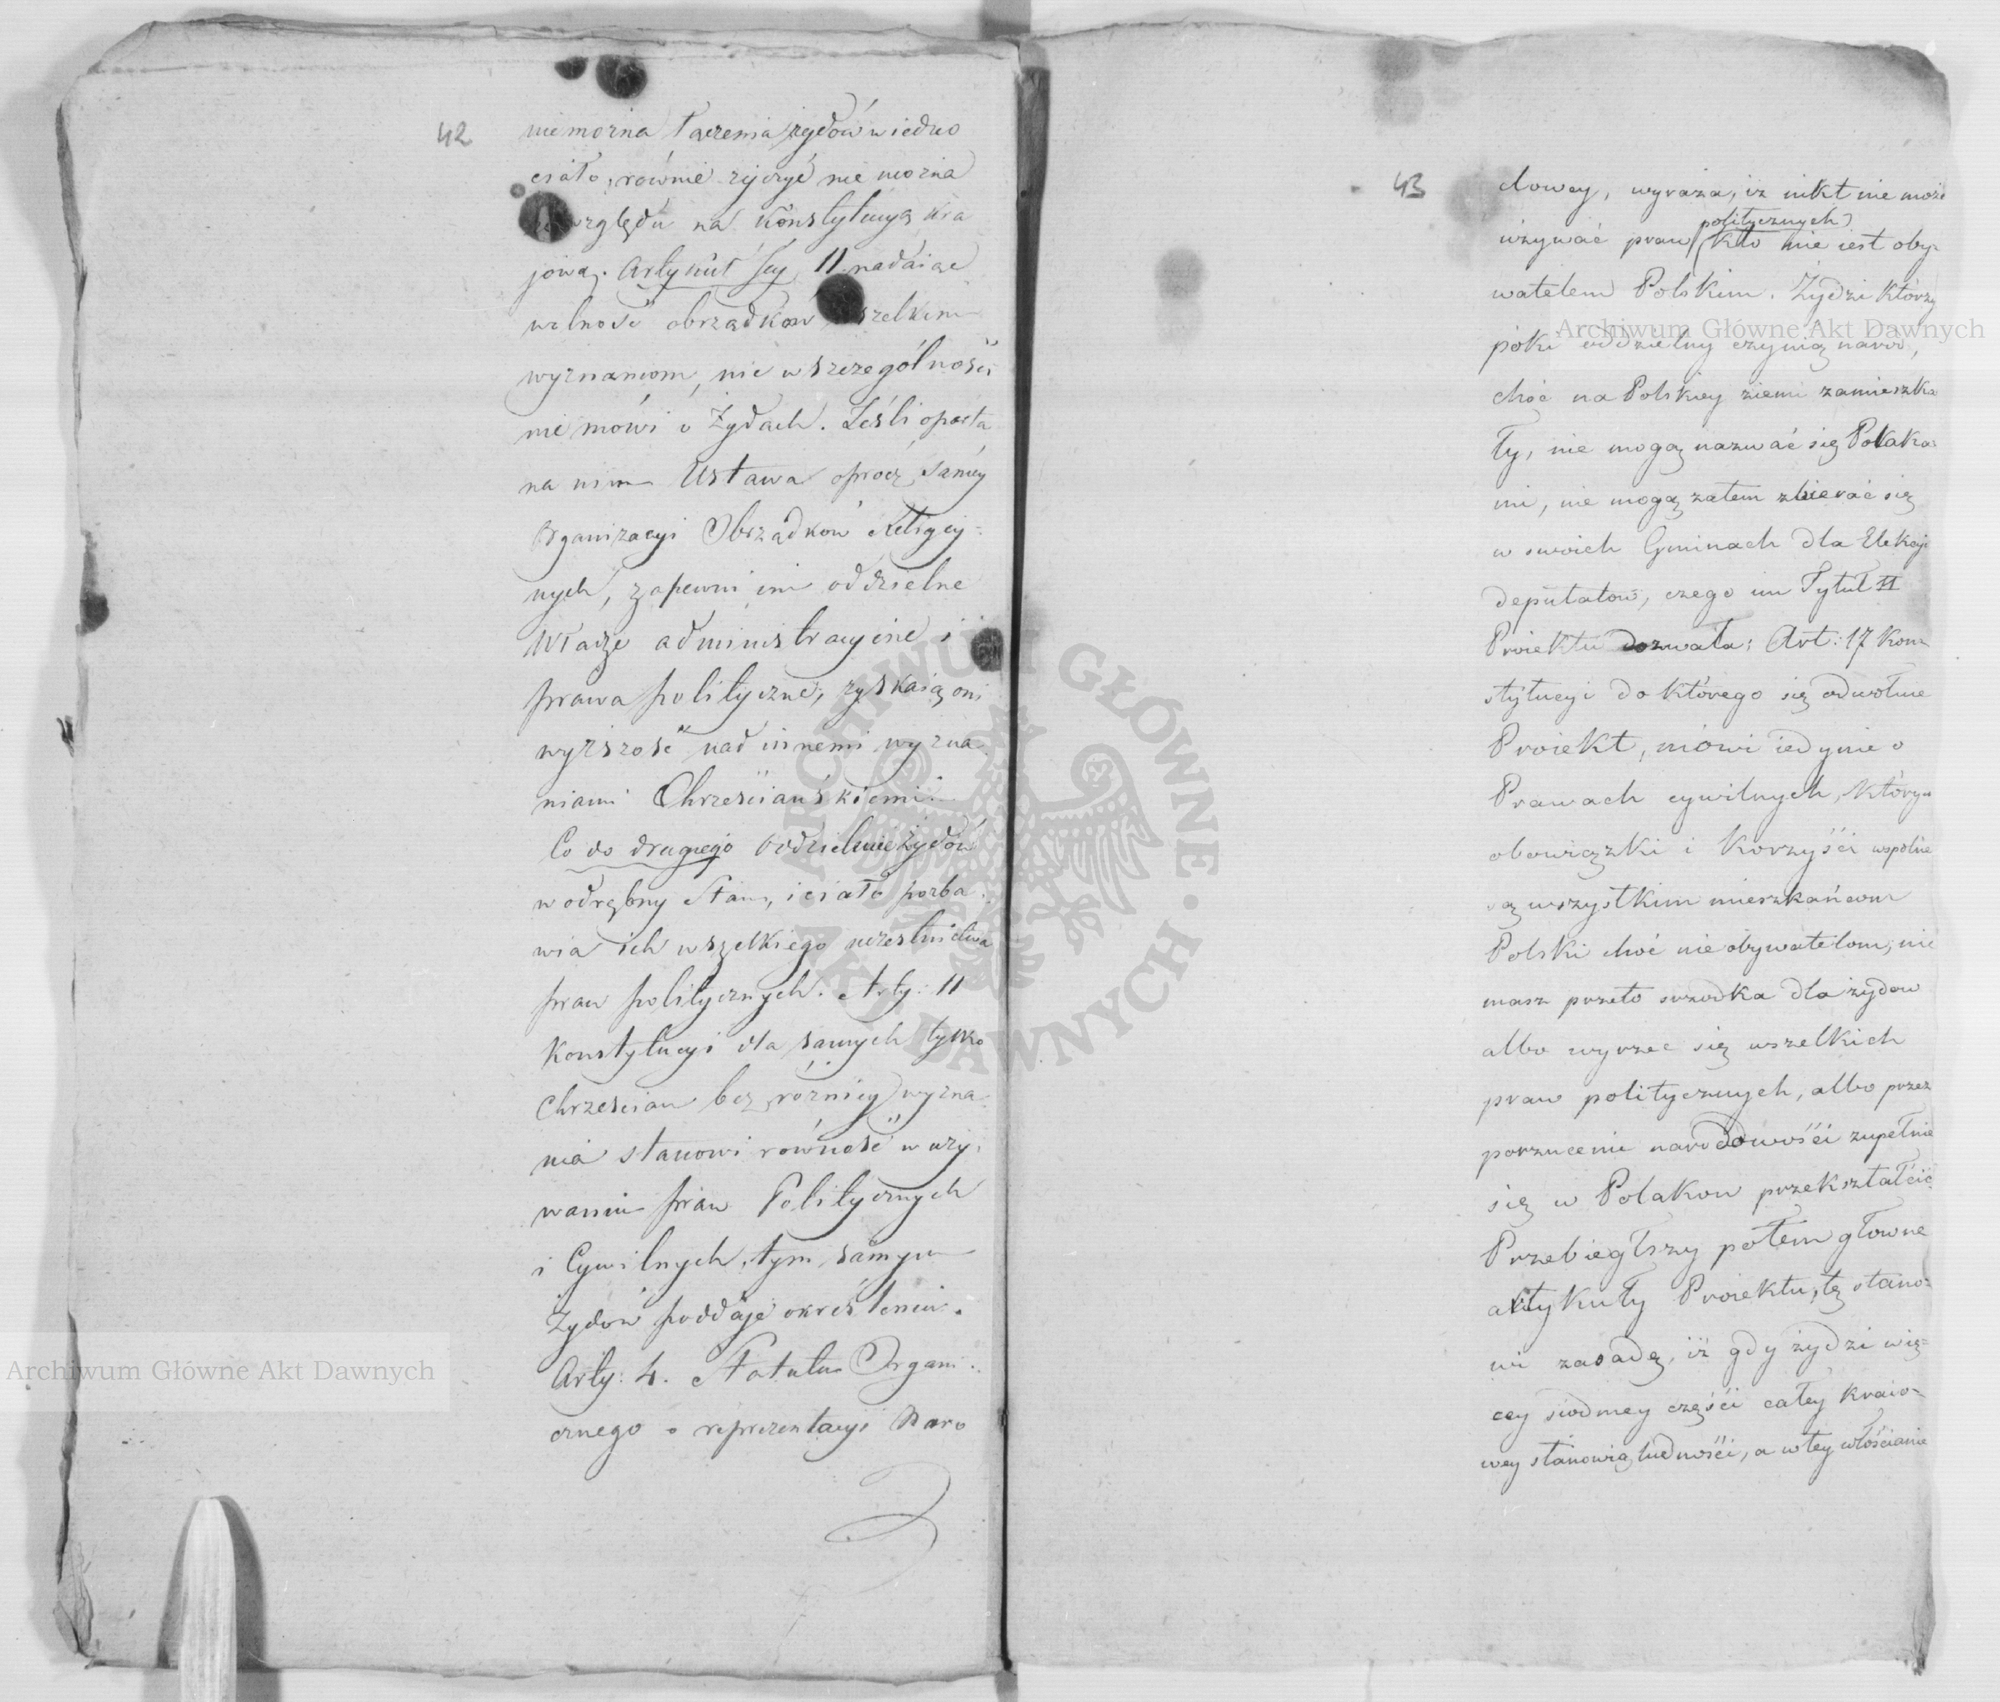 42
nie można łączenia żydów w iedno
ciało, równie życzyć nie można
względu na Konstytucyą kra
jową. Artykuł Jey 11 nadaiąc
wolność obrządków wszelkim
wyznaniom, nic w szczególności
nie mówi o Żydach. Jeśli oparta
na nim Ustawa oprócz samey
Organizacyi Obrządków Religiy-
nych, zapewni im oddzielne
Władze administracyine i
prawa polityczne, zyskaią oni
wyższość nad innemi wyzna
niami Chrześciańskiemi.
Co do drugiego oddzielnie Żydów
w odrębny Stan, i ciało pozba
wia ich wszelkiego uczestnictwa
praw politycznych. Arty: 11
Konstytucyi dla samych tylko
Chrześcian bez różnicy wyzna
nia stanowi równość w uży
waniu praw Politycznych
i Cywilnych, tym samym
Żydów poddaje określeniu.
Arty: 4. Statutu Organi
cznego o reprezentacyi Naro
43
dowey, wyraża, iż nikt nie może
politycznych
używać praw kto nie iest oby-
watelem Polskim. Żydzi którzy
póki oddzielny czynią naród,
choć na Polskiey ziemi zamieszka
ły, nie mogą nazwać się Polaka-
mi, nie mogą zatem zbierać się
w swoich Gminach dla Elekcyi
deputatów, czego im Tytuł II
Proiektu dozwala: Art: 17 Kon-
stytucyi do którego się odwołuie
Proiekt, mówi iedynie o
Prawach cywilnych, który-
obowiązki i korzyści wspólne
są wszystkim mieszkańcom
Polski choć nie obywatelom, nie
masz przeto srzodka dla żydow
albo wyrzec się wszelkich
praw politycznych, albo przez
porzucenie narodowości zupełnie
się w Polakow przekształcić
Przebiegłszy potem głowne
artykuły Proiektu, tę stano-
wi zasadę, iż gdy żydzi wię-
cey siodmey części całey kraio-
wey stanowią ludności, a w tey włościanie
Archiwum Główne Akt Dawnych
Archiwum Główne Akt Dawnych
ARCHIWUM GŁÓWNE · AKT DAWNYCH ·